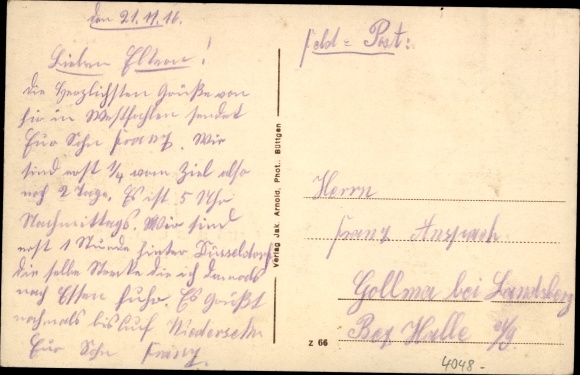 den 21.11.16.
Lieben Eltern!
Die Herzlichsten Grüße von
hir in Westfahlen sendet
Eur Sohn Franz. Wir
sind erst 1/4 vom Ziel also
noch 2 Tage. Es ist 5 Uhr
Nachmittags. Wir sind
erst 1 Stunde hinter Düsseldorf
die selbe Strecke die ich damals
nach Essen fuhr. Es Grüßt
nochmals bis auf Wiedersehn
Eur Sohn Franz.
Verlag Jak. Arnold, Phot., Büttgen
z 66
Feld = Post:
Herrn
Franz Anspach
Gollma bei Landsberg
Bez Halle a/S
4048.-